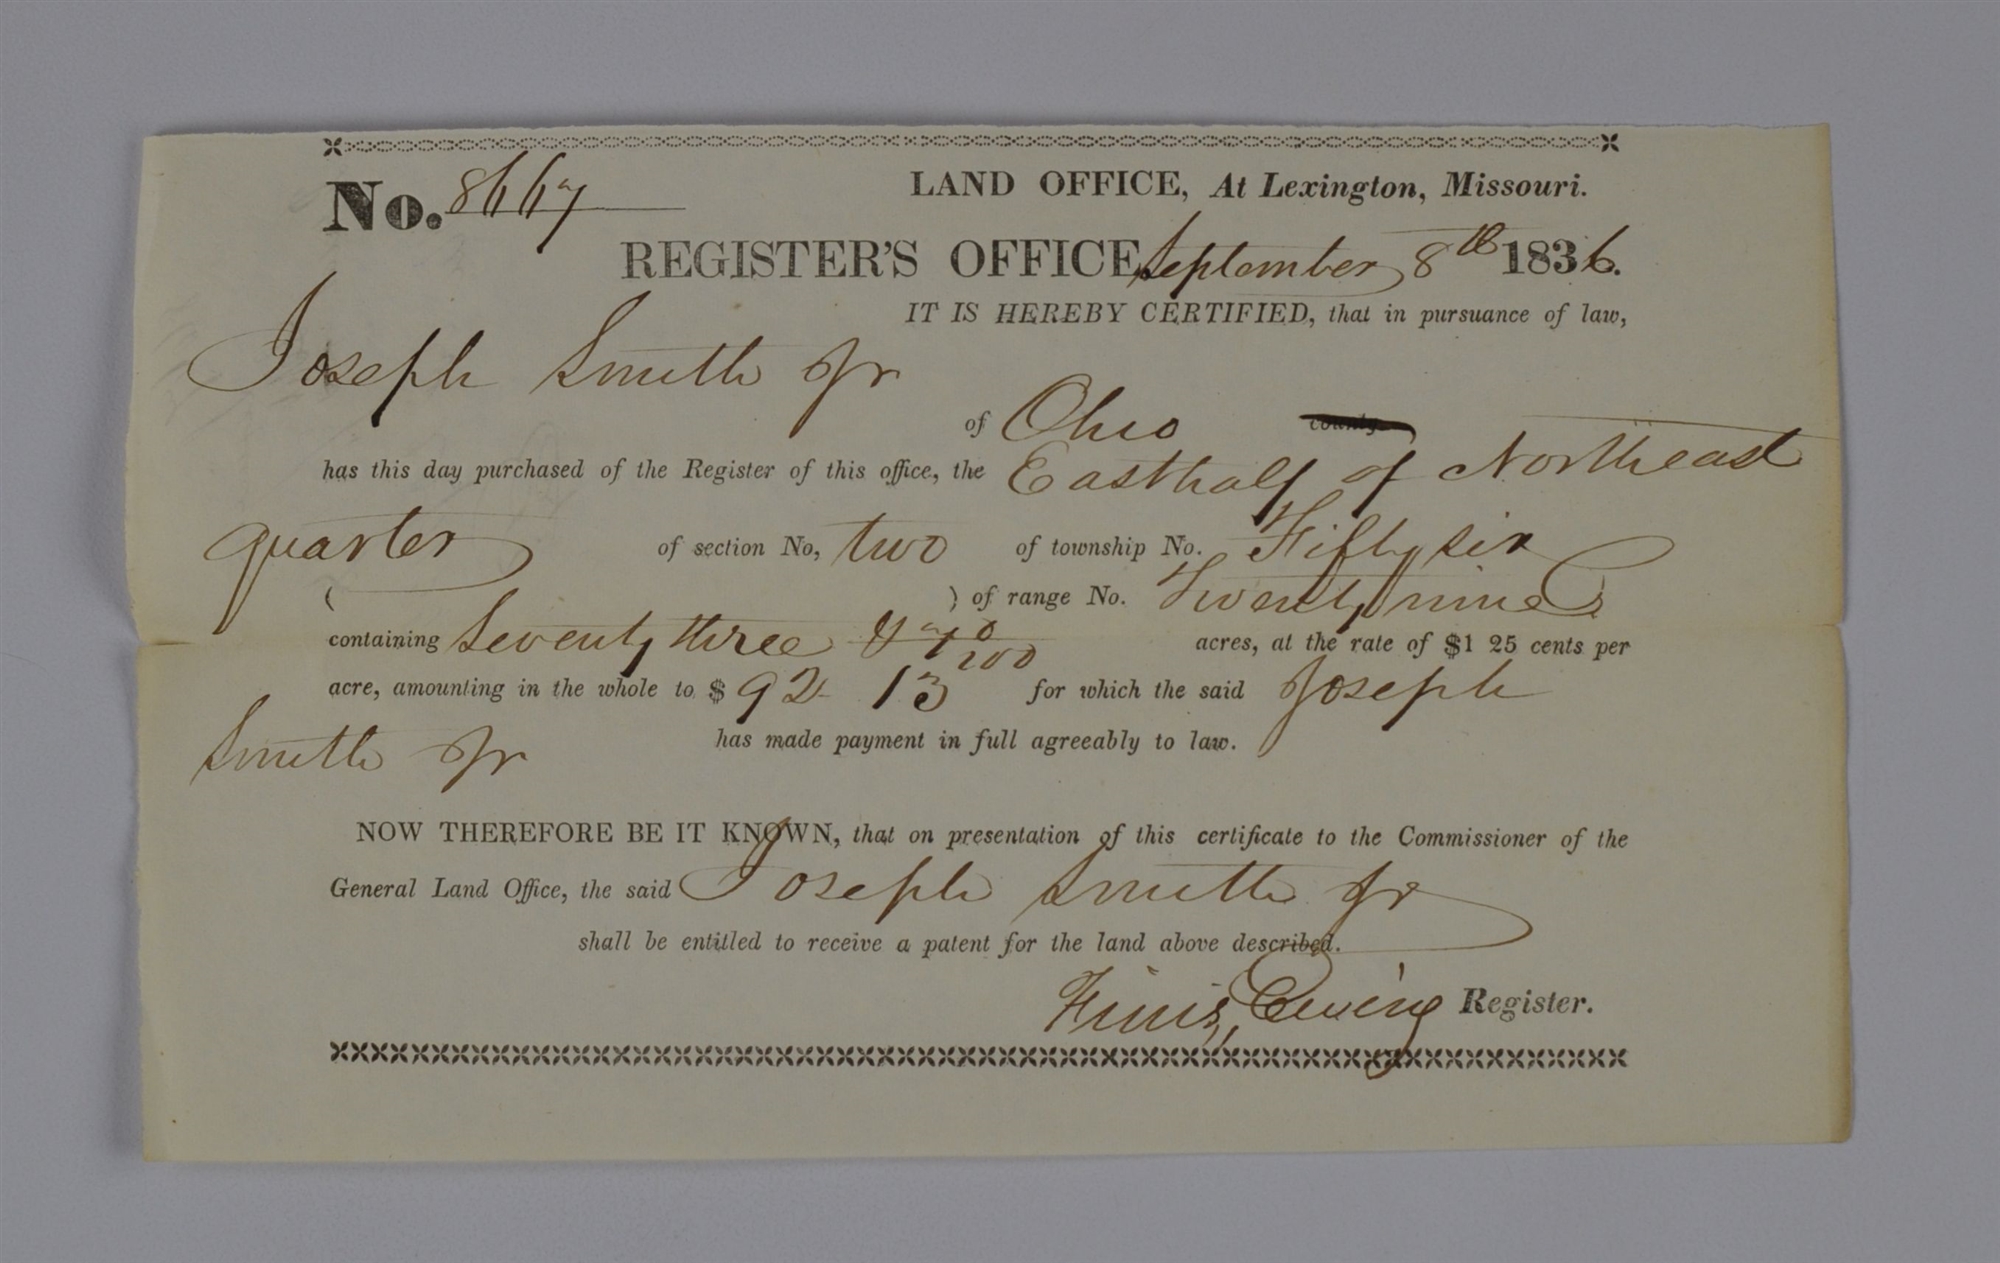 No. 8667
LAND OFFICE, At Lexington, Missouri.
REGISTER'S OFFICE September 8th 1836.
IT IS HEREBY CERTIFIED, that in pursuance of law,
Joseph Smith Jr
of Ohio county
has this day purchased of the Register of this office, the East half of Northeast
quarter of section No, two of township No. Fifty six
( ) of range No. Twenty nine
containing Seventy three & 70/100 acres, at the rate of $1 25 cents per
acre, amounting in the whole to $ 92 13 for which the said Joseph
Smith Jr has made payment in full agreeably to law.
NOW THEREFORE BE IT KNOWN, that on presentation of this certificate to the Commissioner of the
General Land Office, the said Joseph Smith Jr
shall be entitled to receive a patent for the land above described.
Finis Ewing Register.